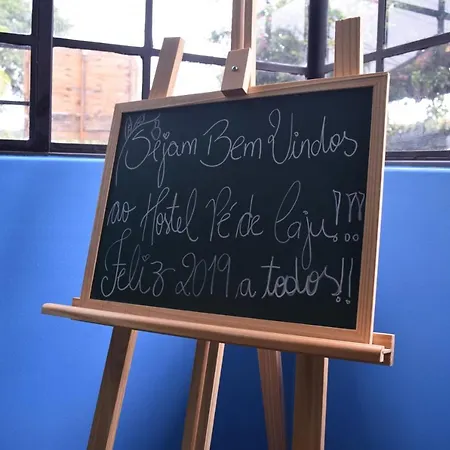 Sejam Bem Vindos
ao Hostel Pé de Caju!!!
Feliz 2019 a todos!!